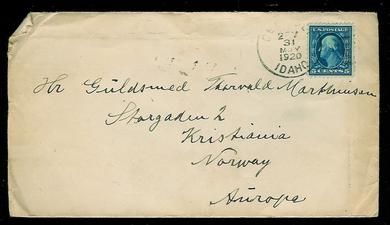 2
31
MAY
1920
IDAHO
U.S. POSTAGE
5 CENTS 5
Hr Guldsmed Thorvald Marthinsen
Storgaden 2
Kristiania
Norway
Aurope